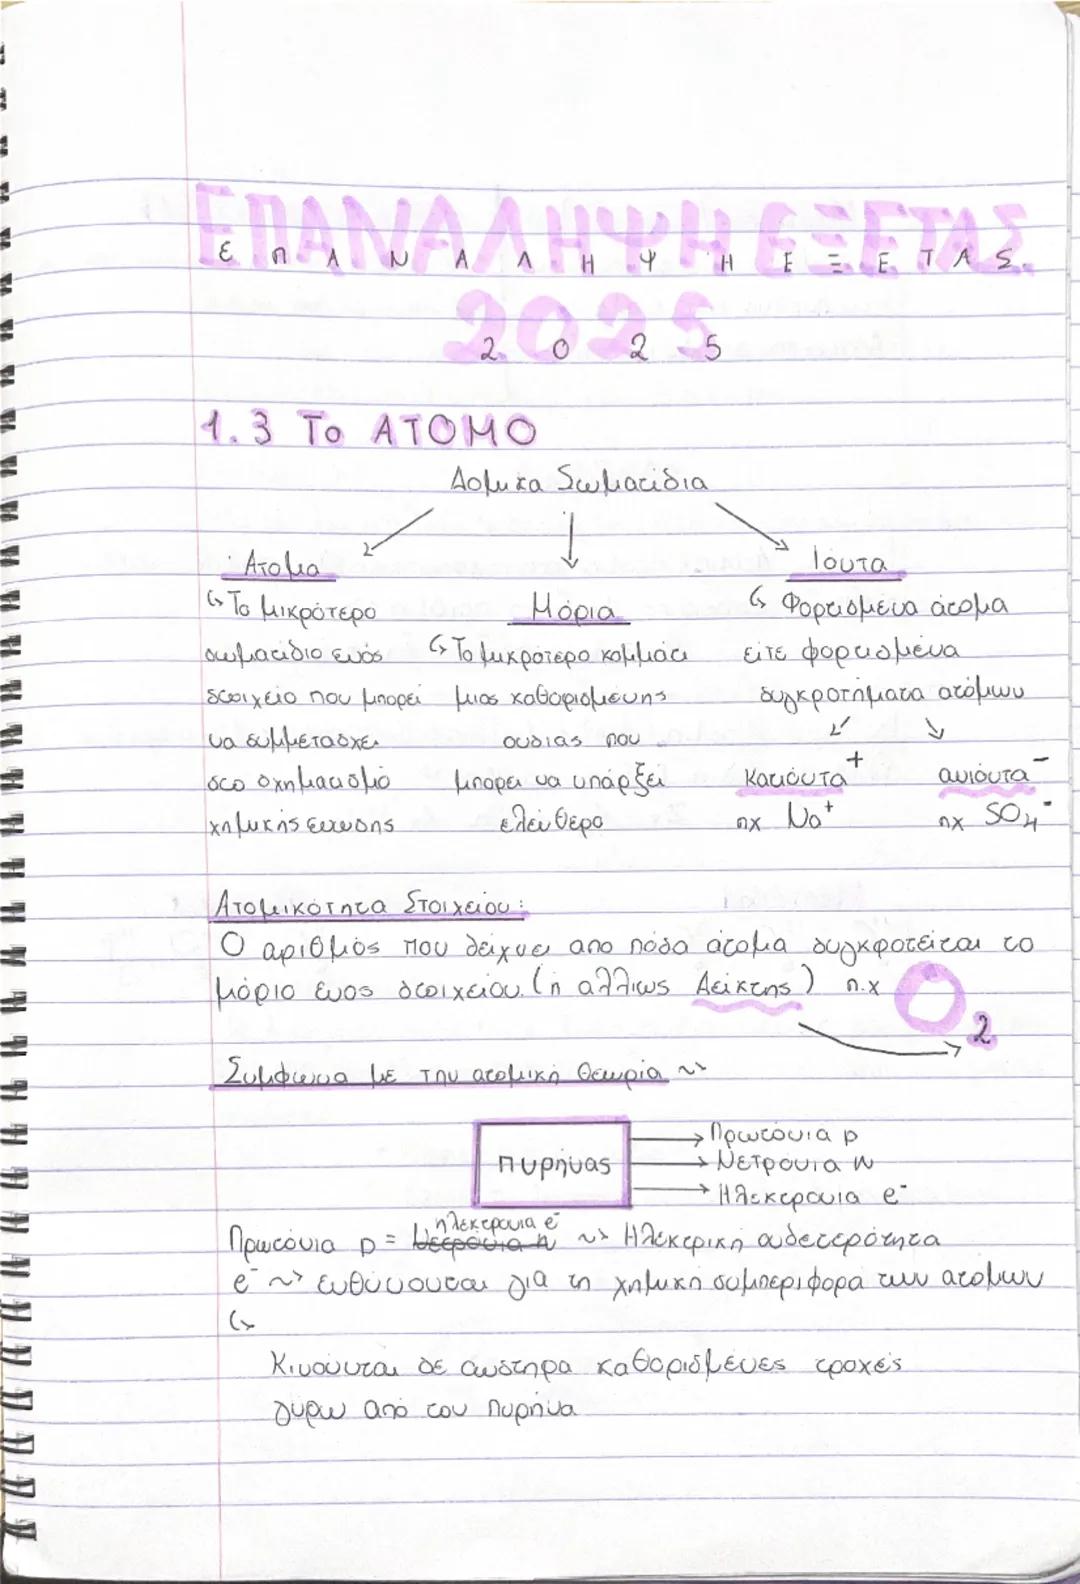 ΕΠΑΝΑΛΗΨΗ ΕΞΕΤΑΣ.
ΕΠΑΝΑΛΗΨΗ ΕΞΕΤΑΣ.
2025
2025
1.3 Το ΑΤΟΜΟ
Δομικα Σωματίδια
Ατομα
↳ Το μικρότερο
σωματίδιο ενός
στοιχείο που μπορεί
να συμμετάσχει
στο σχηματισμό
χημικής ένωσης
Μόρια
↳ Το μικρότερο κομμάτι
μιας καθορισμένης
ουσίας που
μπορει να υπάρξει
ελεύθερο
Ιόντα
↳ Φορτισμένα άτομα
είτε φορτισμένα
συγκροτήματα ατόμων
Κατιόντα⁺
πχ Na⁺
ανιόντα⁻
πχ SO₄⁻
Ατομικότητα Στοιχείου:
Ο αριθμός που δείχνει απο πόσα άτομα συγκροτείται το
μόριο ενος στοιχείου. (ή αλλιως Δείκτης) π.χ O₂
Σύμφωνα με την ατομική θεωρία ~>
πυρήνας
→ Πρωτόνια p
→ Νετρόνια n
→ Ηλεκτρόνια e⁻
ηλεκτρονια e⁻
Πρωτόνια p = Νετρόνια n ~> Ηλεκτρική ουδετερότητα
e⁻ ~> ευθύνονται για τη χημική συμπεριφορά των ατόμων
↳
Κινούνται σε αυστηρα καθορισμένες τροχές
γύρω από τον πυρήνα